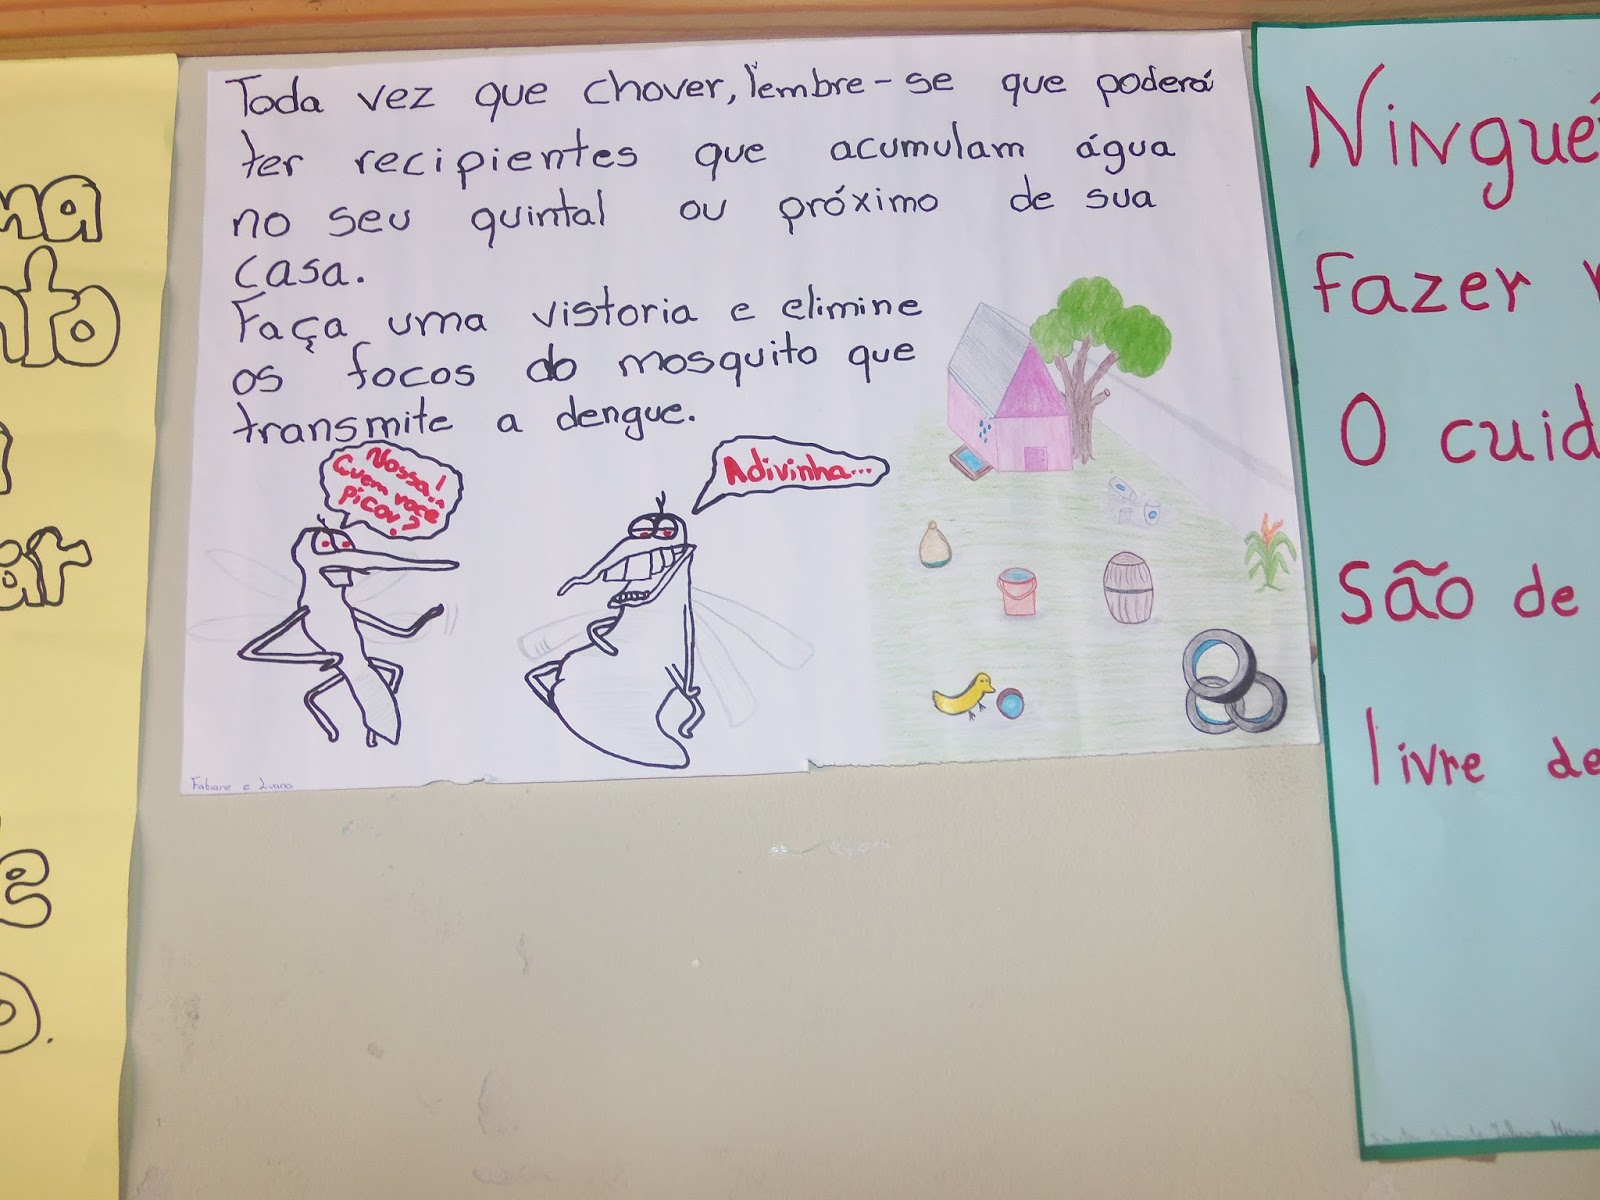 Toda vez que chover, lembre-se que poderá
ter recipientes que acumulam água
no seu quintal ou próximo de sua
casa.
Faça uma vistoria e elimine
os focos do mosquito que
transmite a dengue.
Nossa!
Quem você
picou?
Adivinha...
Fabiane e Luana
Ningué
fazer
O cuid
são de
livre de
ma
nto